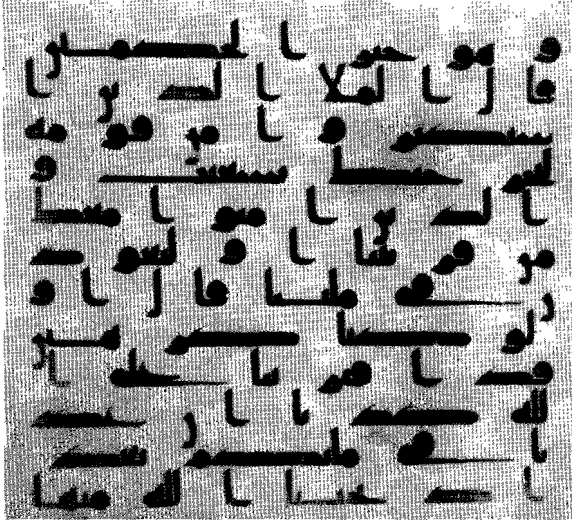 و هو خير الحكمين
قال الملا الذين ا
ستكبروا من قومه
لنخرجنك يشعيب و
الذين امنوا معك
من قريتنا او لتعود
ن في ملتنا قال او
لو كنا كرهين
قد افترينا على ا
لله كذبا ان عد
نا في ملتكم بعد
اذ نجنا الله منها